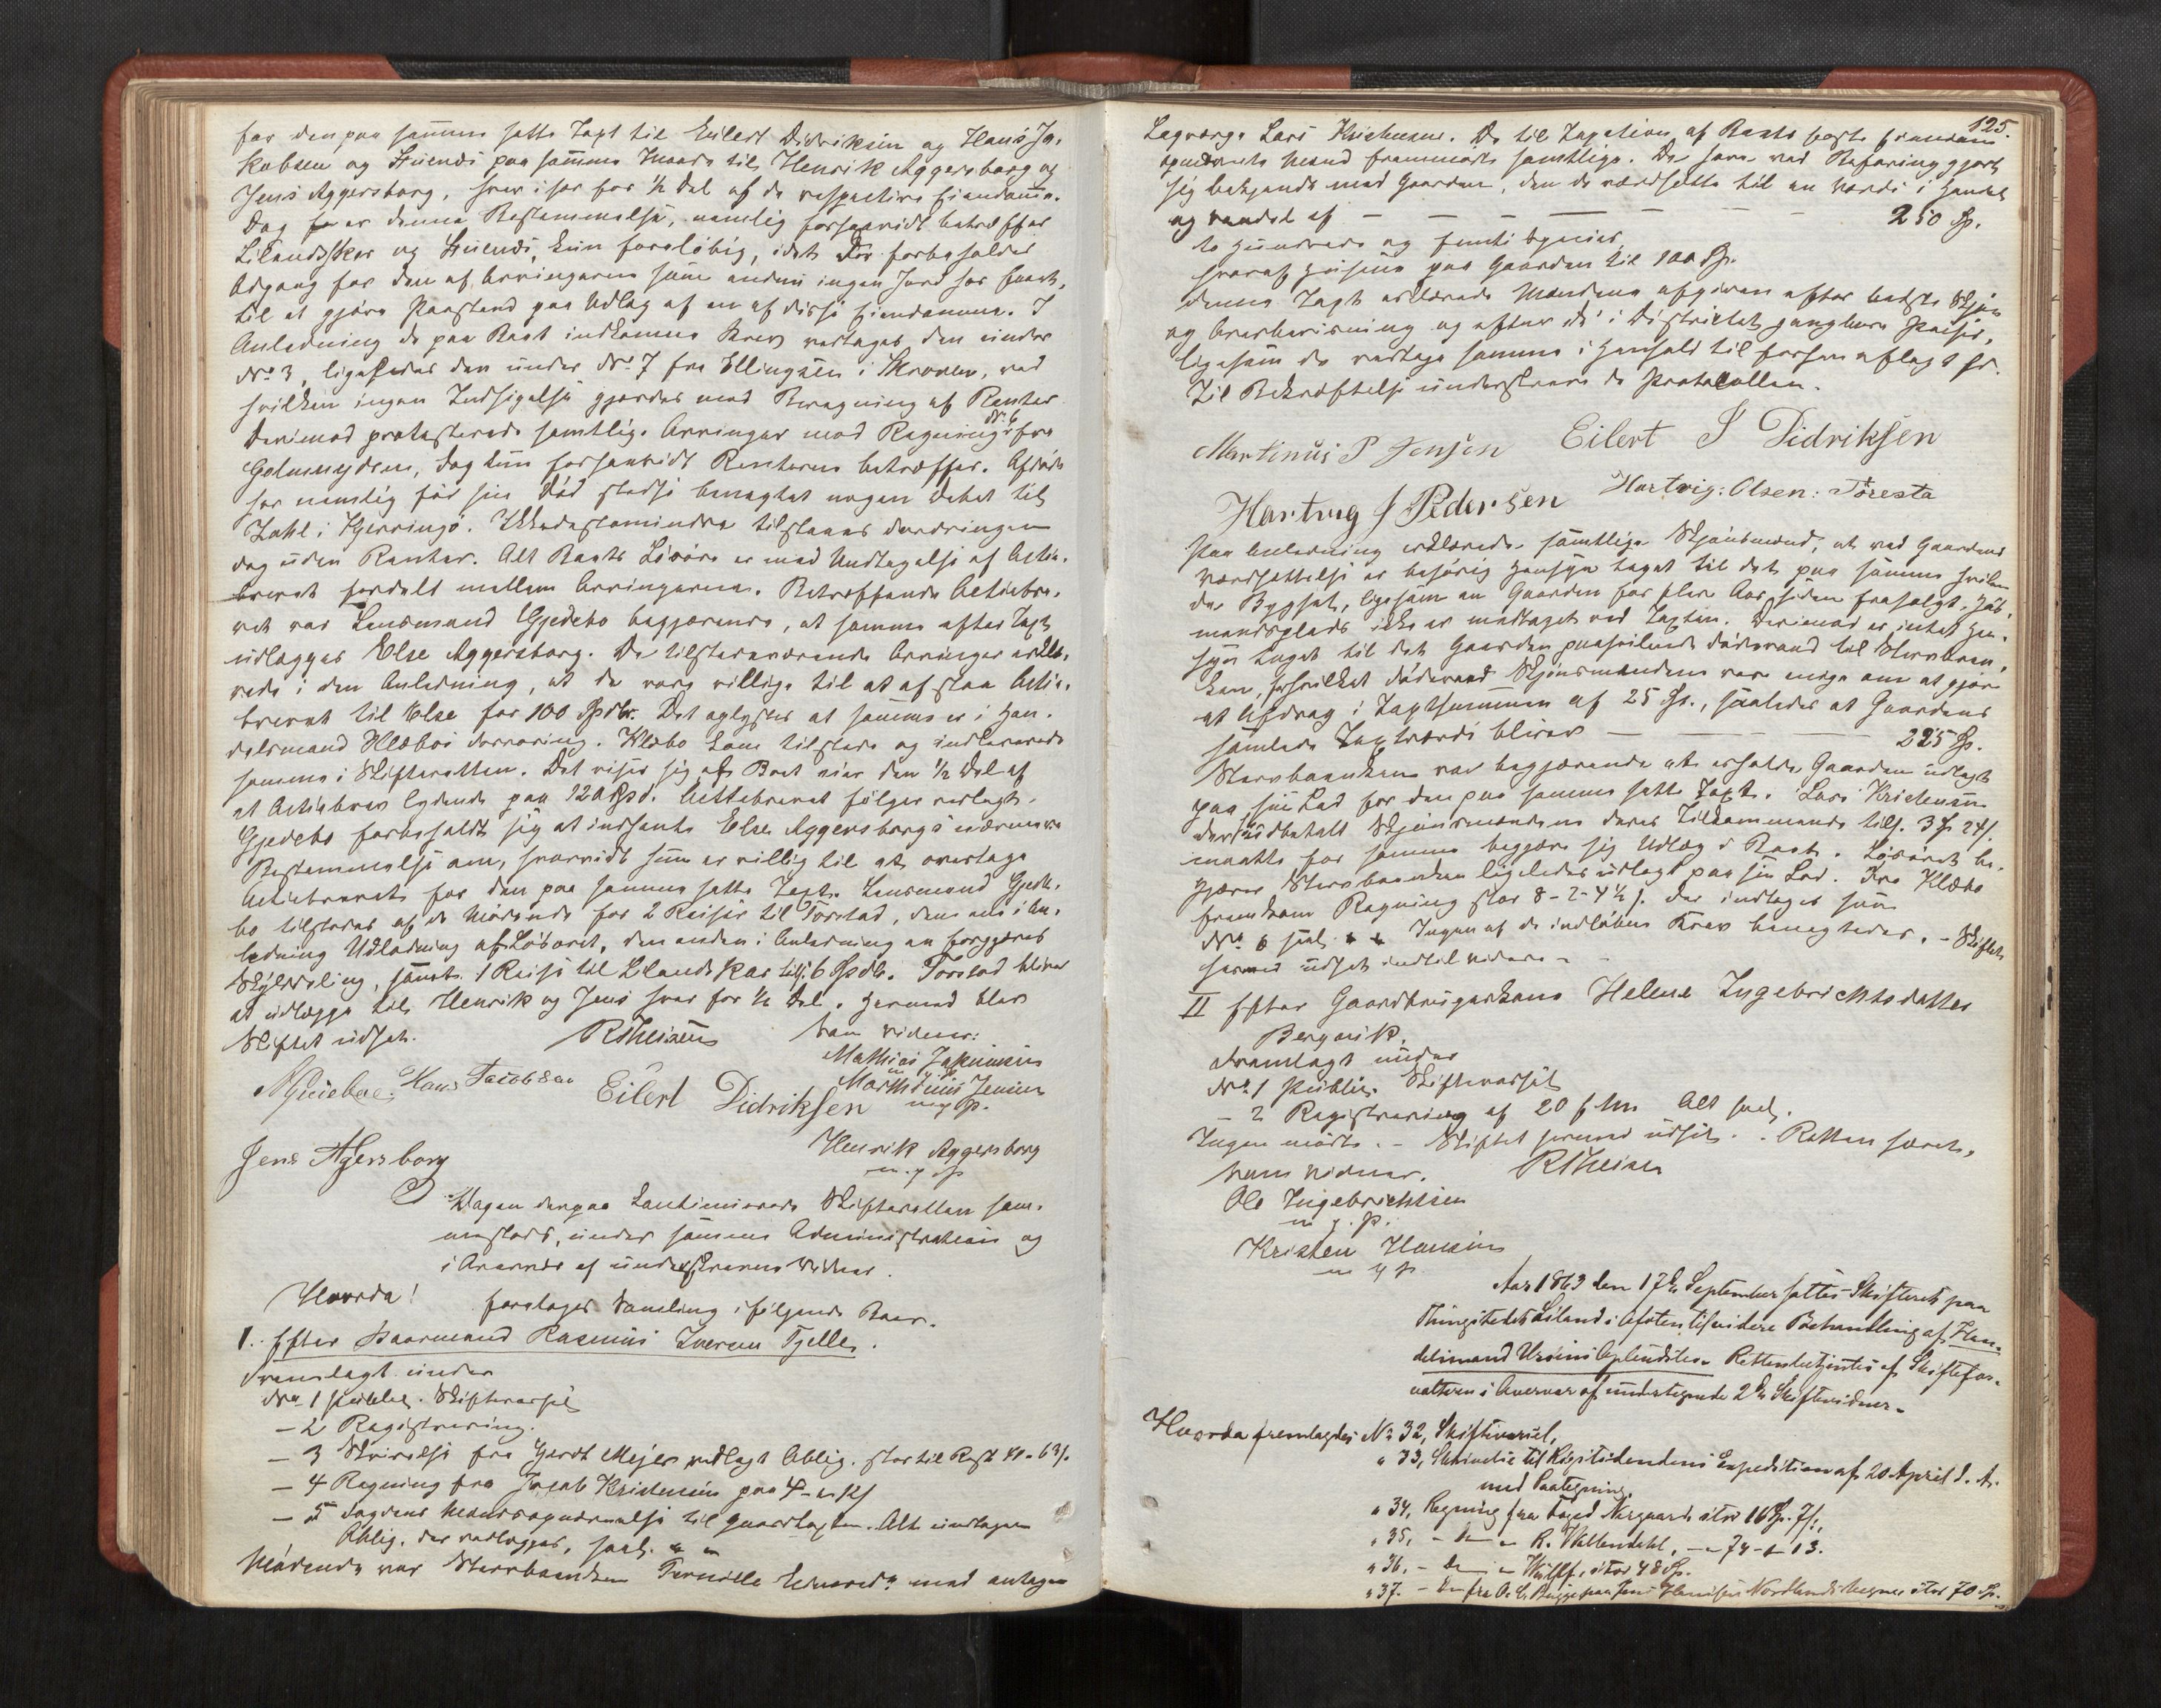 for den paa samme satte Taxt til Eilert Didriksen og Hans Ja-
kobsen og Finends paa samme Maade til Henrik Aggersborg og
Jens Aggersborg, hver især for ½ Del af de respective Eiendomme.
Dog er denne Bestemmelse, nemlig forsaavidt betræffer
Lilandskar og, kun foreløbig, idet der forbeholdes
Adgang for den af Arvingerne som endnu ingen Jord har faaet,
til at gjøre Paastand paa Udlæg af en af disse Eiendomme. I
Anledning de paa Boet indkomne Krav vedtages den under
No 3, ligeledes den under No 7 fra Ellingsen i Skroven, ved
hvilken ingen Indsigelse gjordes mod Beregning af Renter
Derimod protesterede samtlige Arvinger mod Regning No 6 fra
, dog kun forsaavidt Renterne betræffer. Afdøde
har nemlig før sin Død stedse benegtet nogen Debet til
Zahl i Kjerringø. Ikkedestomindre tilstaaes Fordringen
dog uden Renter. Alt Boets Løsøre er med Undtagelse af Actie-
brevet fordelt mellem Arvingerne. Betræffende Actiebre-
vet var Lensmand Gjedebo begjærende, at samme efter Taxt
udlægges Else Aggersborg. De tilstedeværende Arvinger erklæ-
rede i den Anledning, at de vare villige til at afstaa Actie-
brevet til Else for 100 Spdlr. Det oplystes at samme er i Han-
delsmand Klæbos Forvaring. Klæbo kom tilstede og indleverede
samme i Skifteretten. Det viser sig at Boet eier den ½ Del af
et Actiebrev lydende paa 120 Spd. Actiebrevet følger vedlagt.
Gjedebo forbeholdt sig at indhente Else Aggersborgs nærmere
Bestemmelse om, hvorvidt hun er villig til at overtage
Actiebrevet for den paa samme satte Taxt. Lensmand Gjede-
bo tilstodes af de Mødende for 2 Reiser til Torstad, den ene i An-
ledning Udlodning af Løsøret, den anden i Anledning en
Skyldeling, samt 1 Reise til Lilandskar tils. 6 Spdlr. Torstad bliver
at udlægge til Henrik og Jens hver for ½ Del. Hermed blev
Skiftet udsat. RTheisen Som Vidner:
Mathias
Marthinus Jensen
m. p. P.
Hans Jacobsen Eilert Didriksen
Jens Agersborg Henrik Aggersborg
m. p. P.
Dagen derpaa Continuerede Skifteretten sam-
mesteds, under samme Administration og
i Overvær af underskrevne Vidner.
Hvorda! foretoges Samling i følgende Boer.
1. Efter Gaardmand Rasmus Iversen Tjelle.
Fremlagt under
No 1 publicr. Skiftevarsel
- 2 Registrering.
- 3 Skrivelse fra Gerdt Mejer vedlagt Oblig. stor til Rest 41-63 s.
- 4 Regning fra Jacob Kristensen paa 4
- 5 Fogdens Mændsopnævnelse til Gaardtaxten. Alt undtagen
Oblig. der vedlægges, saal.
Mødende var Stervboenken Pernille med antagen
125.
Laugværge Lars Kristensen. De til Taxation af Boets faste Eiendom
opnævnte Mænd fremmødte samtlige. De have ved Befaring gjort
sig bekjendt med Gaarden, den de værdsatte til en Værdi i Handel
og Vandel af — — — — — — 250 Sp.
to Hundrede og femti Species.
hvoraf Husene paa Gaarden til 100 Sp.
denne Taxt erklærede Mændene afgiven efter bedste Skjøn
og Overbevisning og efter de i Districtet gangbare Priser,
ligesom de vedtage samme i Henhold til forhen aflagt Ed.
Til Bekræftelse underskrev de Protokollen.
Martinus P Jensen Eilert J Didriksen
Hartvig J Pedersen Hartvig: Olsen: Toresta
Paa Anledning erklærede samtlige Skjønsmænd, at ved Gaardens
Værdsættelse er behørig Hensyn taget til det paa samme hvilen-
de Bygsel, ligesom en Gaarden for flere Aar siden frasolgt Hus-
mandsplads ikke er medtaget ved Taxten. Derimod er intet Hen-
syn taget til det Gaarden paahvilende Føderaad til Stervboen-
ken, forhvilket Føderaad Skjønsmændene vare enige om at gjøre
et Afdrag i Taxtsummen af 25 Sp., saaledes at Gaardens
samlede Taxtværdi bliver — — — 225 Sp.
Stervboenken var begjærende at erholde Gaarden udlagt
paa sin Lod for den paa samme satte Taxt. Lars Kristensen
der har udbetalt Skjønsmændene deres Tilkommende tils. 3 Sp 24 s.
maatte for samme begjære sig Udlæg i Boet. Løsøret be-
gjærer Stervboenken ligeledes udlagt paa sin Lod. Fra Klæbo
fremkom Regning stor 8-2-4½ s. der indtages som
No 6 saal. Ingen af de indløbne Krav benegtedes. - Skiftet
hermed udsat indtil videre -
II Efter Gaardbrugerkone Helene Ingebrichtsdatter
Bergvik.
Fremlagt under
No 1 Public. Skiftevarsel
- 2 Registrering af 20 f. M. Alt saal.
Ingen mødte. - Skiftet hermed udsat. - Retten hævet.
Som Vidner. RTheisen
Ole Ingebrichtsen
m. p. P.
Kristen Hansen
m p P.
Aar 1863 den 17de September sattes Skifteret paa
Thingstedet Liland i Ofoten til videre Behandling af Han-
delsmand Ursins Opbudsbo. Retten betjentes af Skiftefor-
valteren i Overvær af undertegnede 2de Skiftevidner.
Hvorda fremlagdes No 32, Skiftevarsel,
" 33, Skrivelse til Rigstidendens Expedition af 20 April d. A.
med Paategning.
" 34, Regning fra Foged Norgaard stor 16 Sp. 7 s.,
" 35, - Do " R. Wallendahl, - " 74-1-13.
" 36, - Do " Wulff, stor 48 Sp.
" 37. - Do fra A. C. Brygge paa Jens Hansens Nordlands Vegne stor 70 Sp.